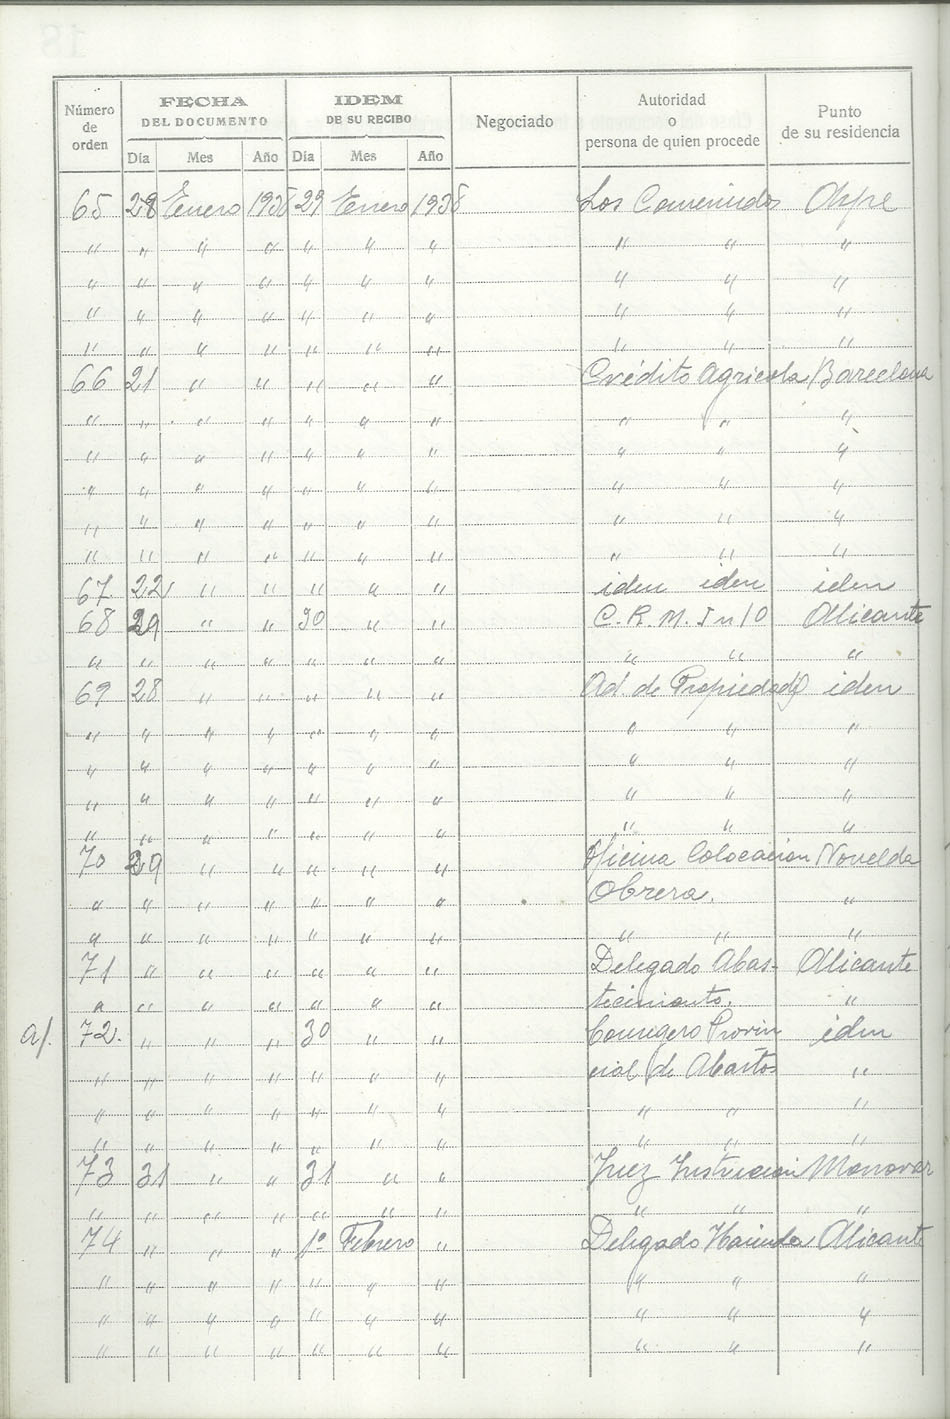 Número de orden FECHA DEL DOCUMENTO IDEM DE SU RECIBO Negociado Autoridad o persona de quien procede Punto de su residencia
Día Mes Año Día Mes Año
65 28 Enero 1938 29 Enero 1938 Los Comunidos Aspe
" " " " " " " " " "
" " " " " " " " " "
" " " " " " " " " "
" " " " " " " " " "
66 21 " " " " " Crédito Agricola Barcelona
" " " " " " " " " "
" " " " " " " " " "
" " " " " " " " " "
" " " " " " " " " "
" " " " " " " " " "
67 22 " " " " " iden iden iden
68 29 " " 30 " " C. R. M. I nº 10 Alicante
" " " " " " " " " "
69 28 " " " " " Ad. de Propiedades iden
" " " " " " " " " "
" " " " " " " " " "
" " " " " " " " " "
" " " " " " " " " "
70 29 " " " " " Oficina Colocacion Novelda
" " " " " " " Obrera. "
" " " " " " " " " "
71 " " " " " " Delegado Abas- Alicante
" " " " " " " tecimiento. "
a/. 72. " " " 30 " " Consegero Provin iden
" " " " " " " cial de Abastos "
" " " " " " " " " "
" " " " " " " " " "
73 31 " " 31 " " Juez Instrucion Monovar
" " " " " " " " " "
74 " " " 1º Febrero " Delegado Hacienda Alicante
" " " " " " " " " "
" " " " " " " " " "
" " " " " " " " " "